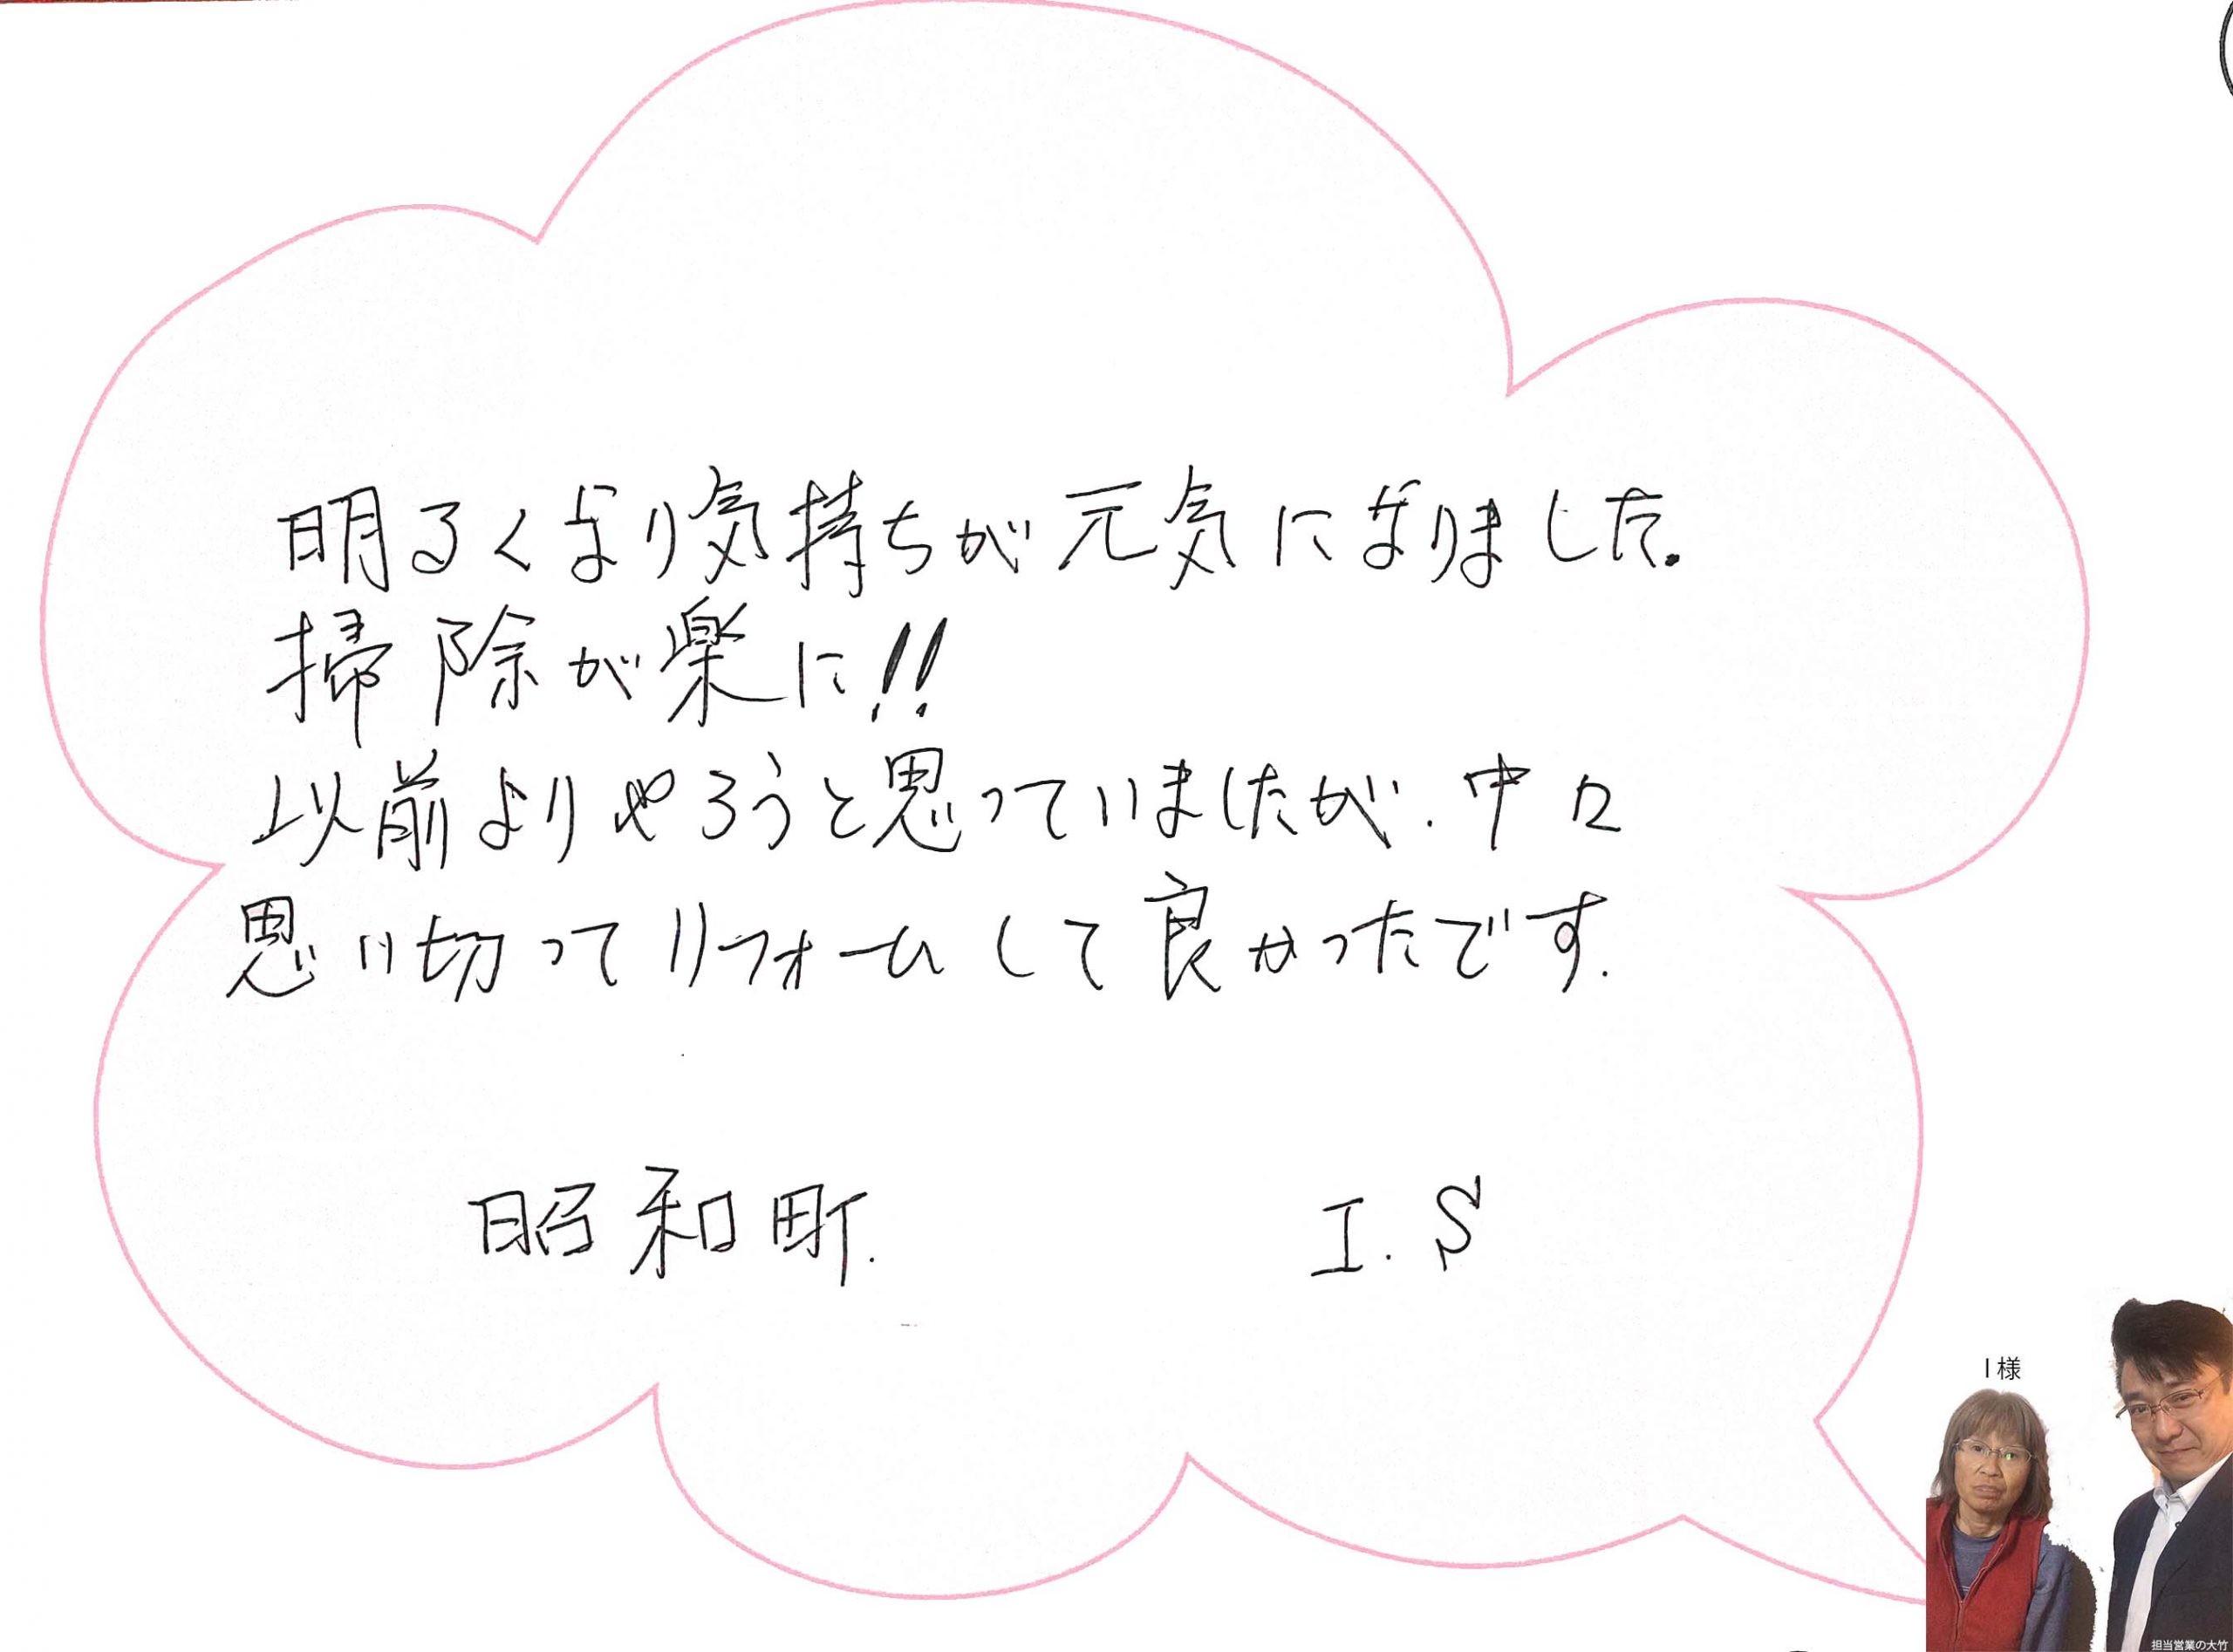 明るくなり気持ちが元気になりました。
掃除が楽に!!
以前よりやろうと思っていましたが、中々
思い切ってリフォームして良かったです。
昭和町. I.S
I様
担当営業の大竹